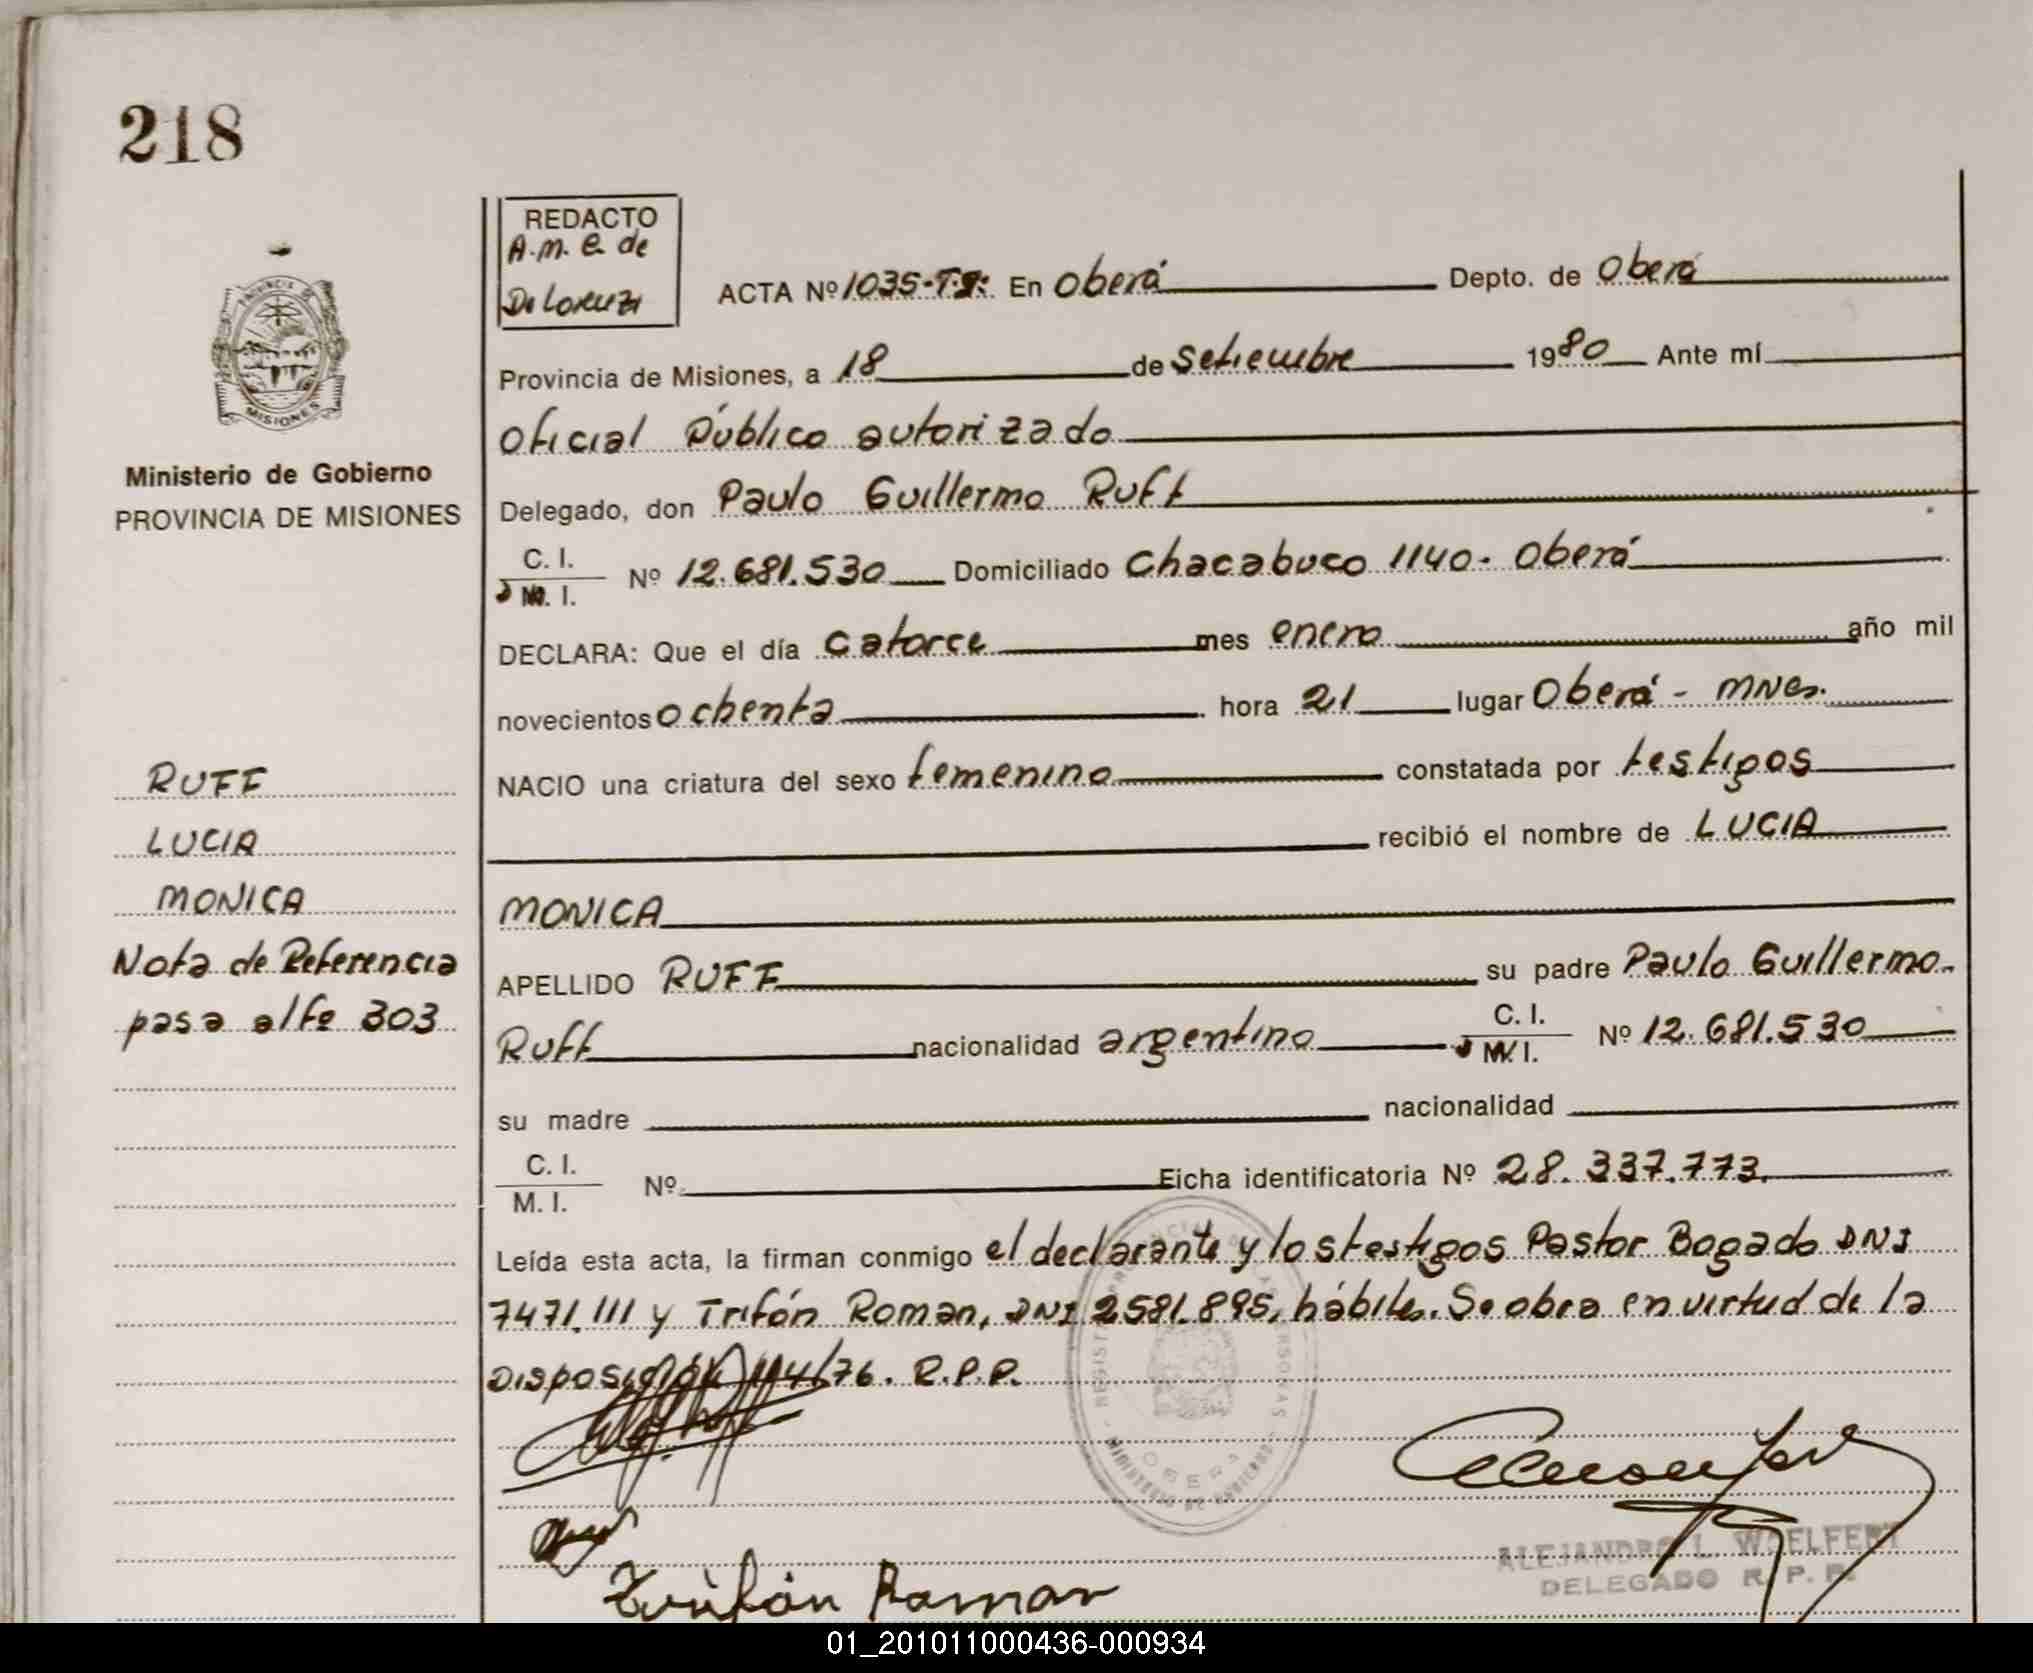 218
REDACTO
A.M.C. de
De Lorenzi
ACTA Nº 1035-T.I: En Oberá Depto. de Oberá
Provincia de Misiones, a 18 de Setiembre 1980 Ante mí
Oficial Público autorizado
Delegado, don Paulo Guillermo Ruff
C. I.
M. I. Nº 12.681.530 Domiciliado Chacabuco 1140. Oberá
DECLARA: Que el día catorce mes enero año mil
novecientos ochenta hora 21 lugar Oberá - Mnes.
NACIO una criatura del sexo femenino constatada por testigos
recibió el nombre de LUCIA
MONICA
APELLIDO RUFF su padre Paulo Guillermo
Ruff nacionalidad argentino C. I.
M. I. Nº 12.681.530
su madre nacionalidad
C. I.
M. I. Nº Ficha identificatoria Nº 28.337.773.
Leída esta acta, la firman conmigo el declarante y los testigos Pastor Bogado DNI
7471.111 y Trifón Roman, DNI 2581.895, hábiles. Se obra en virtud de la
Disposición 114/76. R.P.P.
Trifón Roman
ALEJANDRO L. WOELFERT
DELEGADO R. P. P.
PROVINCIA DE
MISIONES
Ministerio de Gobierno
PROVINCIA DE MISIONES
RUFF
LUCIA
MONICA
Nota de Referencia
pasa al fº 303
OBERA
MINISTERIO DE GOBIERNO
01_201011000436-000934